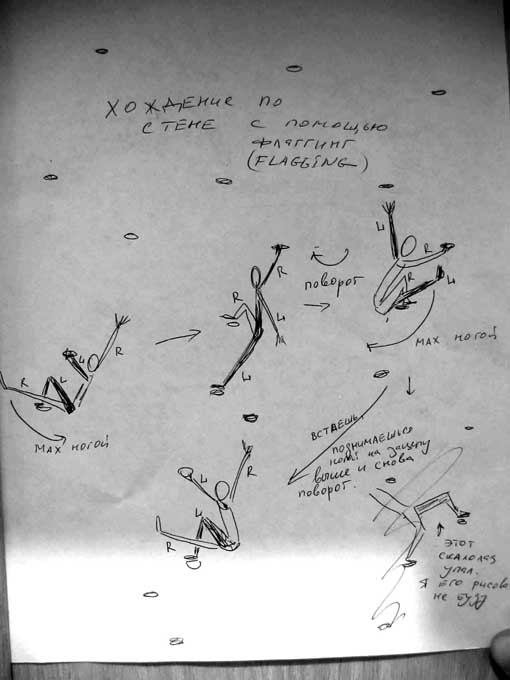 ХОЖДЕНИЕ ПО
СТЕНЕ С ПОМОЩЬЮ
ФЛАГГИНГ
(FLAGGING)
L
R
R
L
R
L
R
ПОВОРОТ
R
L
L
R
МАХ НОГОЙ
R
L
МАХ НОГОЙ
ВСТАЕШЬ,
ПОДНИМАЕШЬСЯ
НА ЗАЦЕПУ
ВЫШЕ И СНОВА
ПОВОРОТ.
L
R
L
R
ЭТОТ
СКАЛОЛАЗ
УПАЛ.
Я ЕГО РИСОВА
НЕ БУДУ